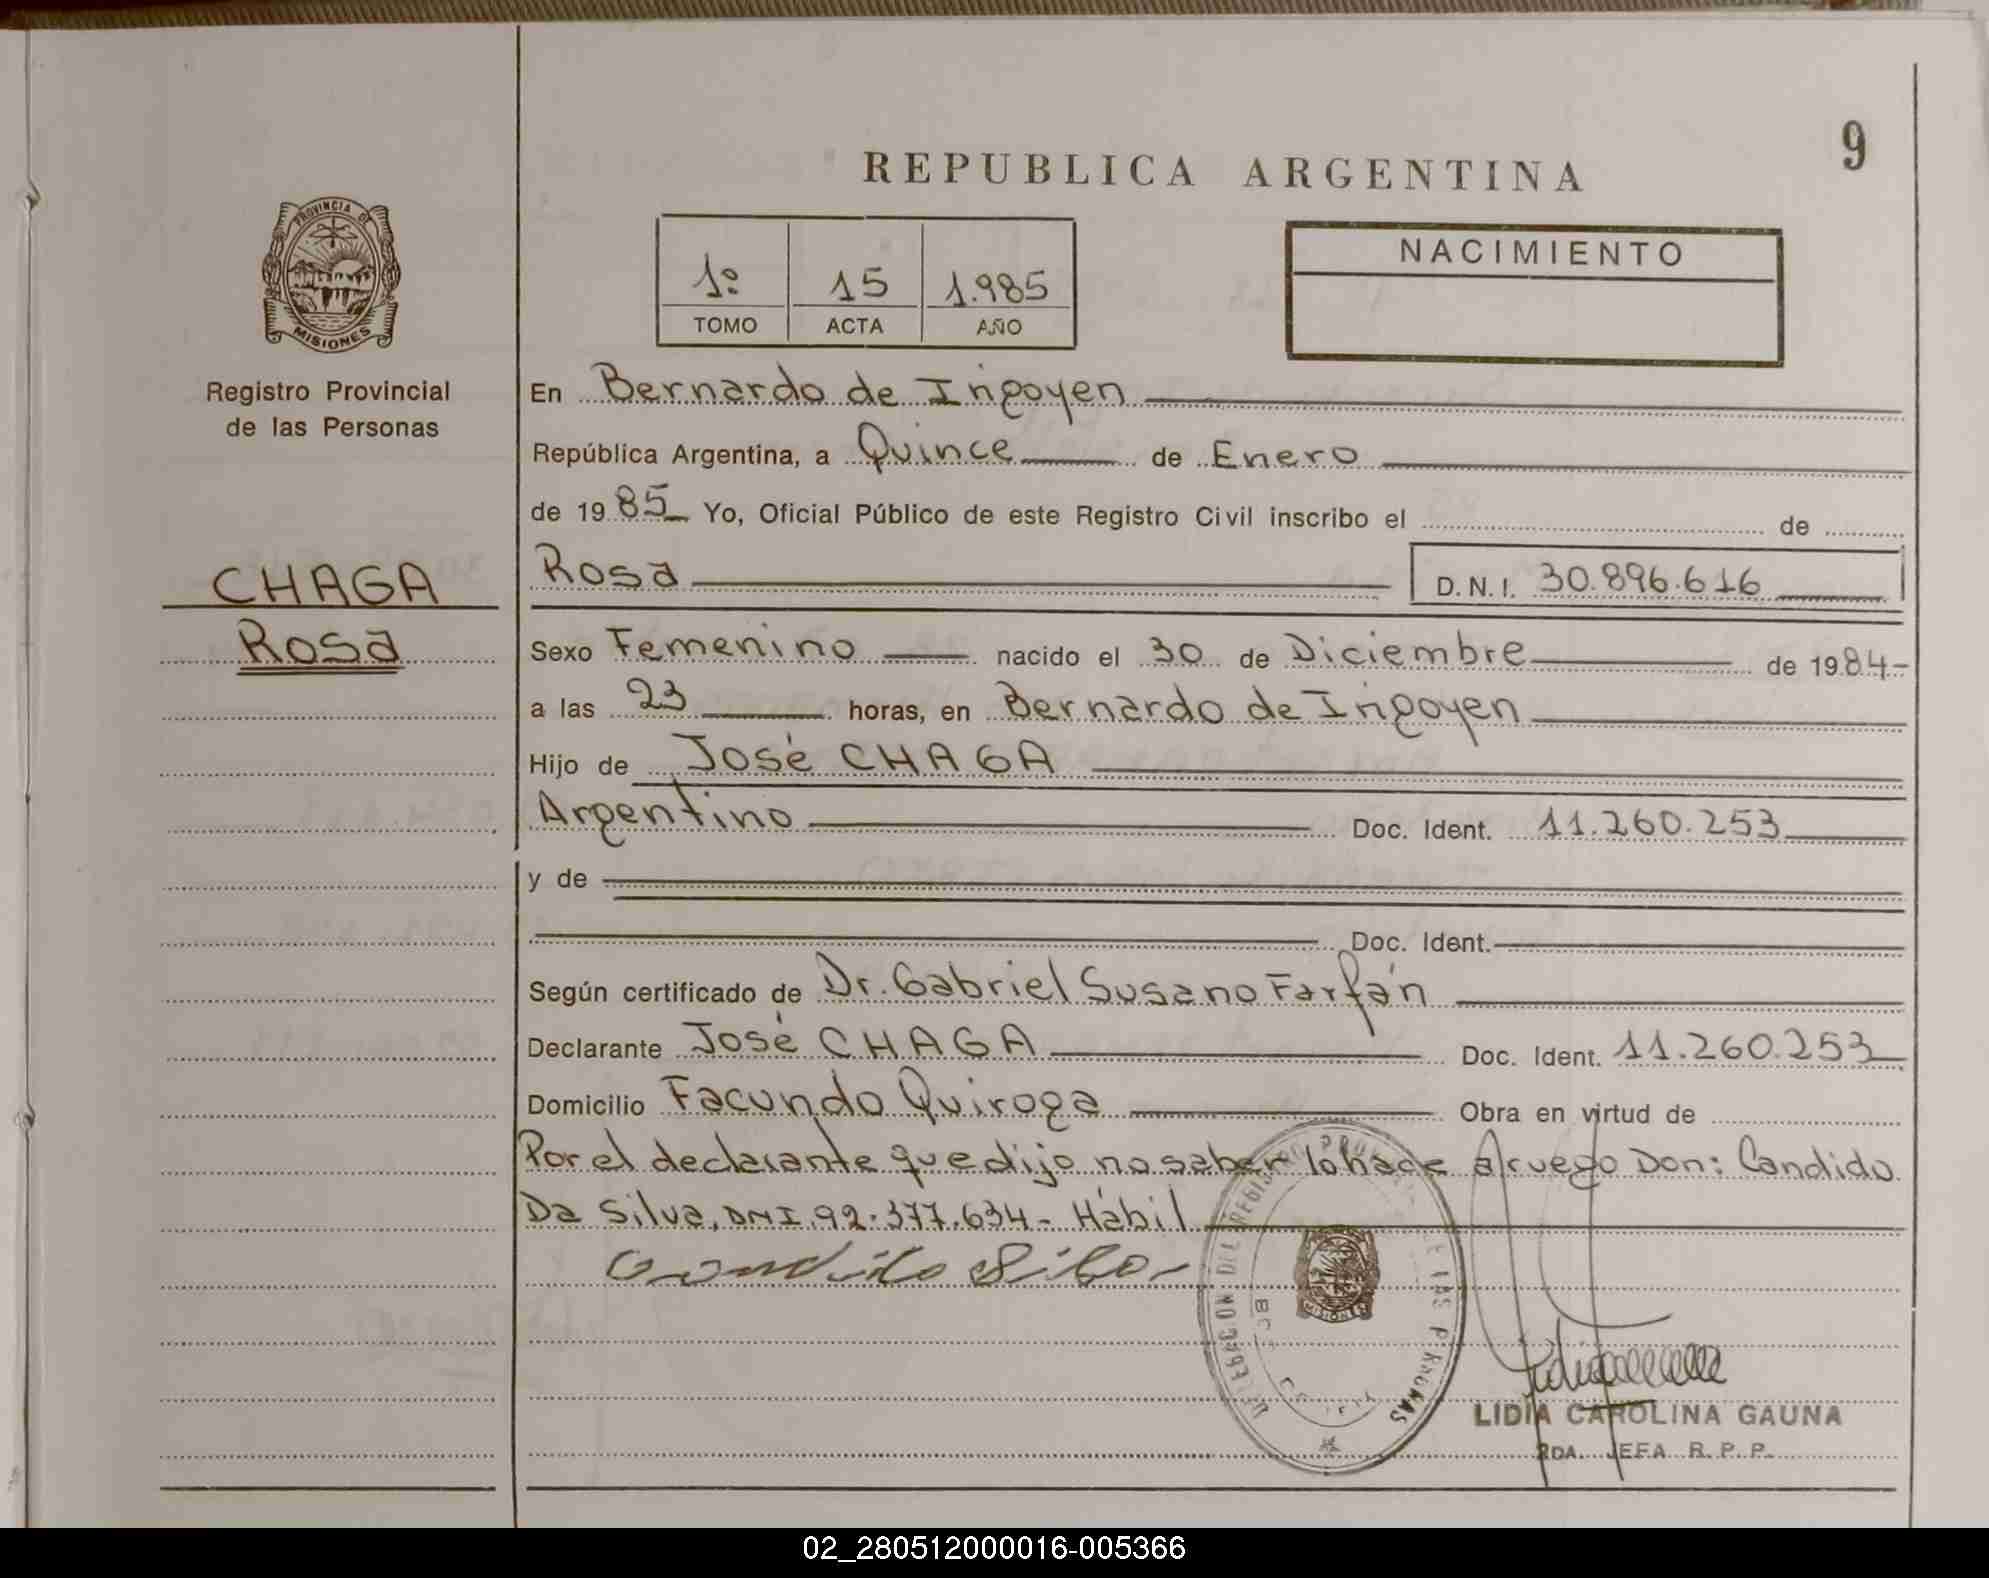 9
REPUBLICA ARGENTINA
PROVINCIA DE
MISIONES
Registro Provincial
de las Personas
1º 15 1.985
TOMO ACTA AÑO
NACIMIENTO
CHAGA
Rosa
En Bernardo de Irigoyen
República Argentina, a Quince de Enero
de 1985 Yo, Oficial Público de este Registro Civil inscribo el de
Rosa D.N.I. 30.896.616
Sexo Femenino nacido el 30 de Diciembre de 1984-
a las 23 horas, en Bernardo de Irigoyen
Hijo de José CHAGA
Argentino Doc. Ident. 11.260.253
y de
Doc. Ident.
Según certificado de Dr. Gabriel Susano Farfán
Declarante José CHAGA Doc. Ident. 11.260.253
Domicilio Facundo Quiroga Obra en virtud de
Por el declarante que dijo no saber lo hace a ruego Don: Candido
Da Silva, DNI. 92.377.634- Hábil
MISIONES
LIDIA CAROLINA GAUNA
2DA. JEFA R. P. P.
02_280512000016-005366